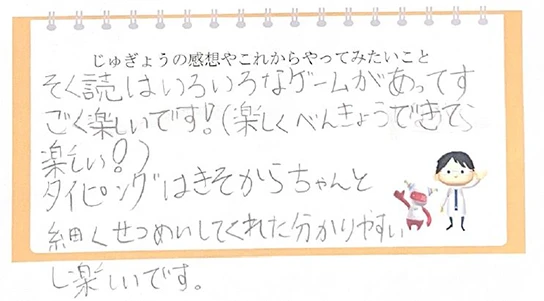 じゅぎょうの感想やこれからやってみたいこと
そく読はいろいろなゲームがあってす
ごく楽しいです!(楽しくべんきょうできてら
楽しい!)
タイピングはきそからちゃんと
細くせつめいしてくれた分かりやすい
し楽しいです。